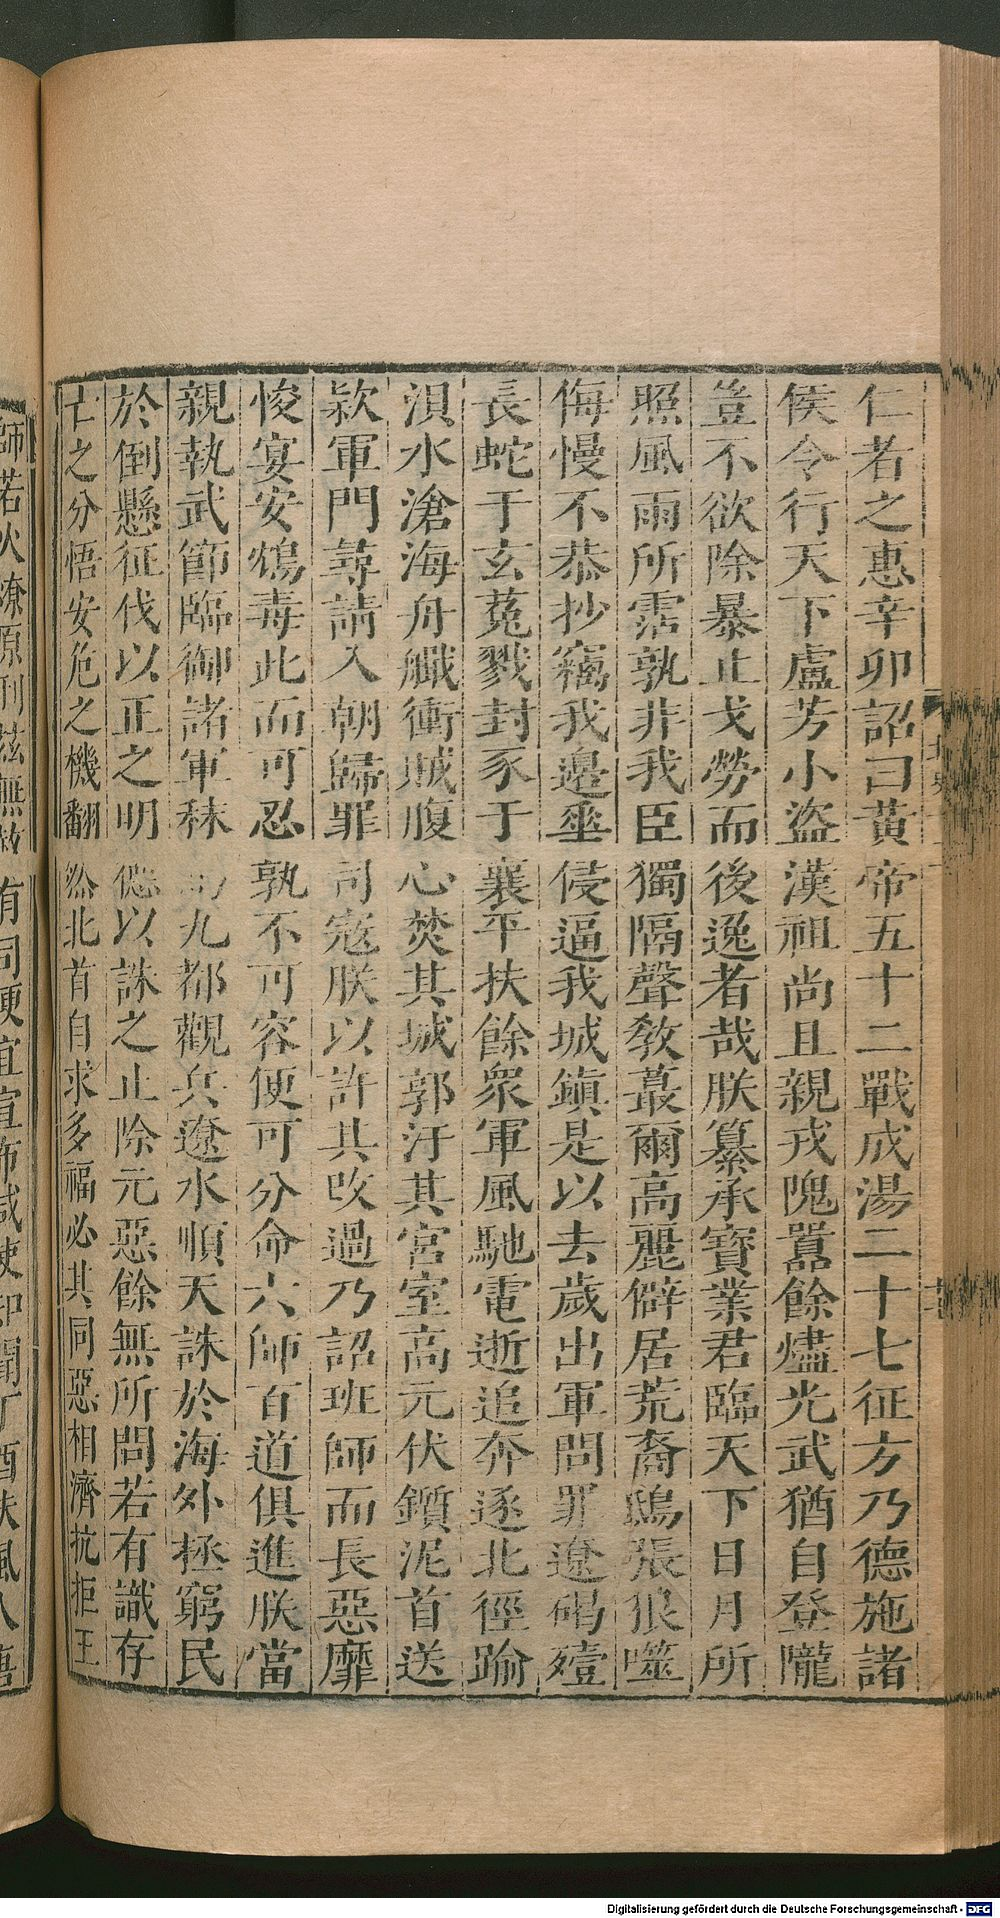 仁者之惠辛卯詔曰黃帝五十二戰成湯二十七征方乃德施諸
侯令行天下盧芳小盜漢祖尚且親戎隗囂餘燼光武猶自登隴
豈不欲除暴止戈勞而後逸者哉朕纂承寶業君臨天下日月所
照風雨所霑孰非我臣獨隔聲教蕞爾高麗僻居荒裔鴟張狼噬
侮慢不恭抄竊我邊垂侵逼我城鎮是以去歲出軍問罪遼碣殪
長蛇于玄菟戮封豕于襄平扶餘衆軍風馳電逝追奔逐北徑踰
浿水滄海舟艥衝賊腹心焚其城郭汙其宮室高元伏鑕泥首送
款軍門尋請入朝歸罪司寇朕以許其改過乃詔班師而長惡靡
悛宴安鴆毒此而可忍孰不可容便可分命六師百道俱進朕當
親執武節臨御諸軍秣九都觀兵遼水順天誅於海外拯窮民
於倒懸征伐以正之明德以誅之止除元惡餘無所問若有識存
亡之分悟安危之機翻然北首自求多福必其同惡相濟抗拒王
師若火燎原刑玆無赦有司便宜宣布咸使知聞丁酉扶風人
Digitalisierung gefördert durch die Deutsche Forschungsgemeinschaft - DFG